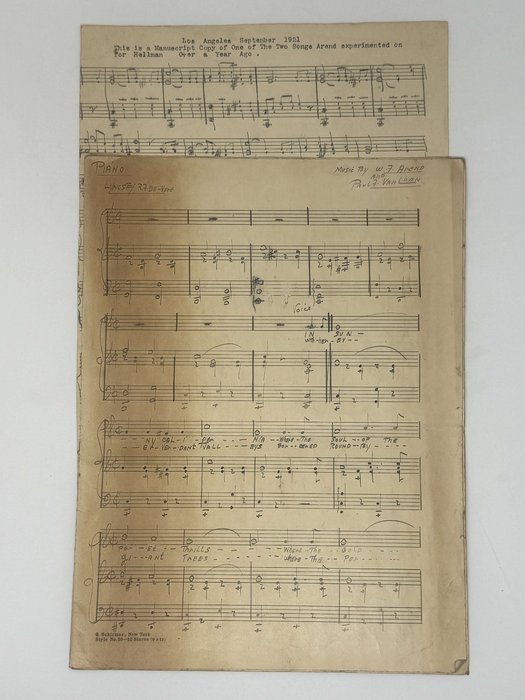 Los Angeles September 1921
This is a Manuscript Copy of One of The Two Songs Arend experimented on
For Hellman Over a Year Ago .
PIANO
MUSIC BY W. F. AREND
AND
PAUL F. VAN LOAN
LYRICS BY
Voice
IN SUN -
WHERE THE SOUL - OF THE
VALL - EYS ROUND - BY
PO - ET THRILLS WHERE - THE GOLD
GI - ANT TREES WHERE - THE POP -
G. Schirmer, New York
Style No. 20-12 Staves